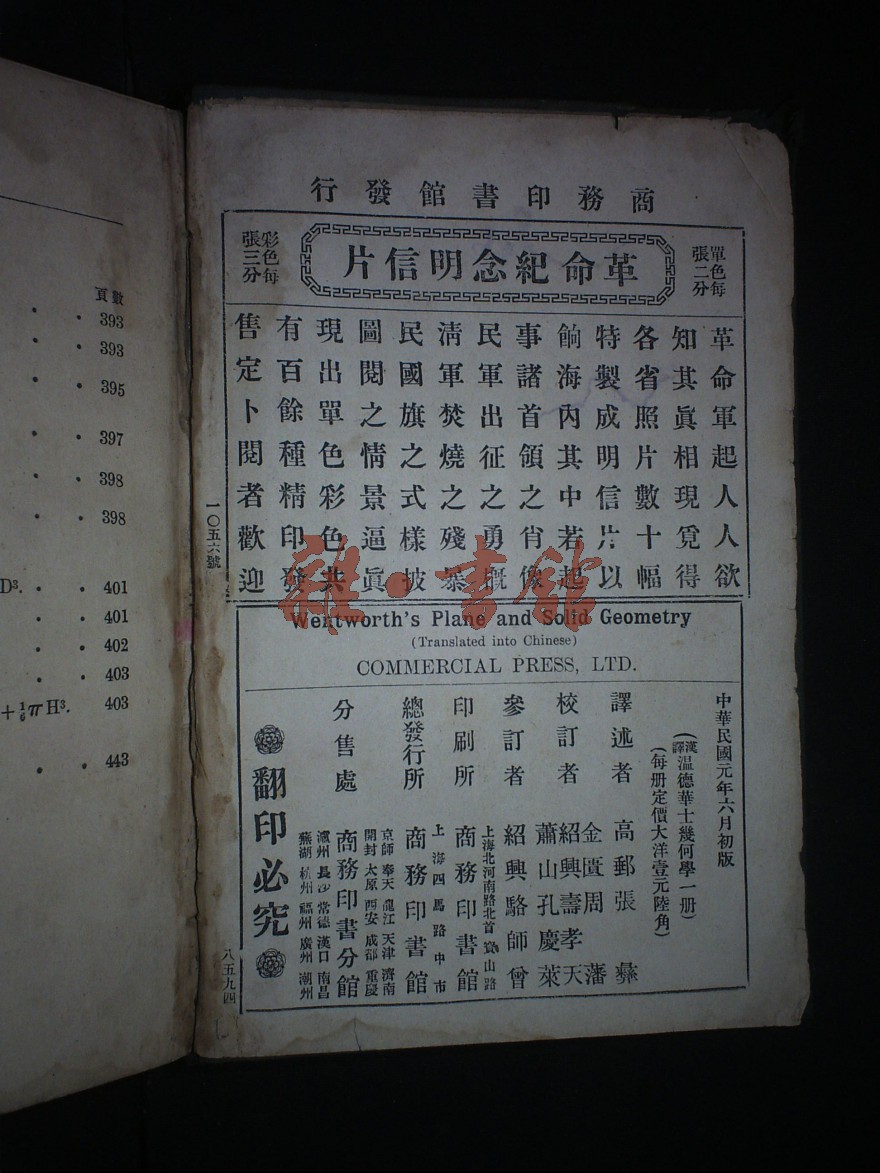 數頁
393
393
395
397
398
398
D³. 401
401
402
403
+⅙πH³. 403
443
商務印書館發行
單色每張二分
革命紀念明信片
彩色每張三分
革命軍起人人欲
知其眞相現覓得
各省照片數十幅
特製成明信片以
餉海內其中若起
事諸首領之肖像
民軍出征之勇概
淸軍焚燒之殘暴
民國旗之式樣披
圖閱之情景逼眞
現出單色彩色共
有百餘種精印發
售定卜閱者歡迎
一〇五六號
雜·書館
Wentworth's Plane and Solid Geometry
(Translated into Chinese)
COMMERCIAL PRESS, LTD.
中華民國元年六月初版
(漢譯溫德華士幾何學一册)
(每册定價大洋壹元陸角)
譯述者 高郵張彝
金匱周藩
校訂者 紹興壽孝天
蕭山孔慶萊
參訂者 紹興駱師曾
上海北河南路北首寶山路
印刷所 商務印書館
上海四馬路中市
總發行所 商務印書館
京師 奉天 龍江 天津 濟南
開封 太原 西安 成都 重慶
分售處 商務印書分館
瀘州 長沙 常德 漢口 南昌
蕪湖 杭州 福州 廣州 潮州
翻印必究
八五九四